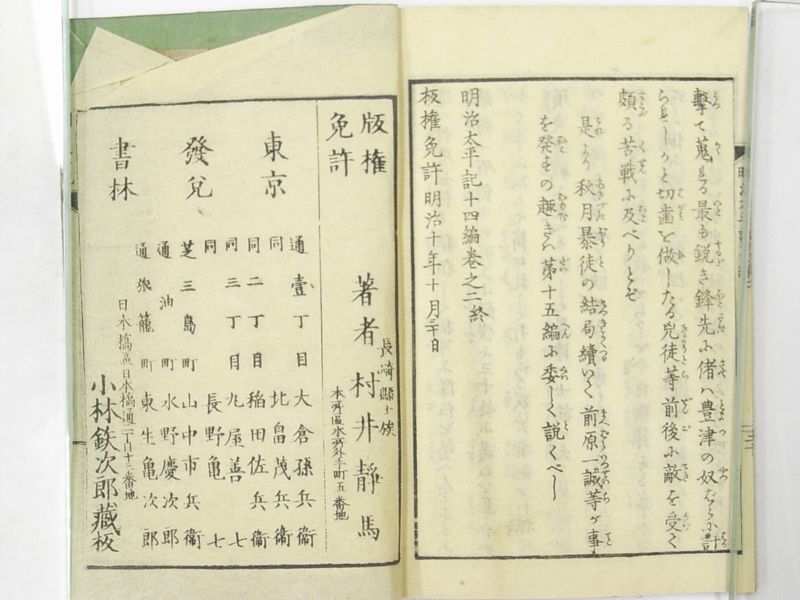 撃て蒐る最も鋭き鋒先に偖ハ豊津の奴ばらに計
られしかと切歯を做したる兇徒等前後に敵を受て
頗る苦戦に及べりとぞ
是より秋月暴徒の結局續いて前原一誠等が事
を発せの趣きハ第十五編に委しく説くべし
明治太平記十四編巻之二終
板権免許明治十年十月三十日
版権免許
長崎縣士族
著者 村井靜馬
本所區水所外手町五番地
東京
發兌
書林
通壹丁目 大倉孫兵衞
同 北畠茂兵衞
同二丁目 稲田佐兵衞
同三丁目 丸屋善七
同 長野亀七
芝三島町 山中市兵衞
通油町 水野慶次郎
通旅籠町 東生亀次郎
日本橋區日本橋通二丁目十三番地
小林鉄次郎藏板